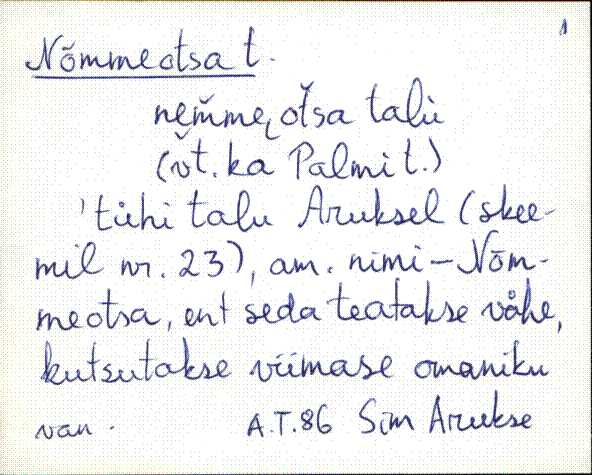 1
Nõmmeotsa t.
nem̆meotsa talu
(vt. ka Palmi t.)
'tühi talu Aruksel (skee-
mil nr. 23), am. nimi – Nõm-
meotsa, ent seda teatakse vähe,
kutsutakse viimase omaniku
van. A.T.86 Sim Arukse